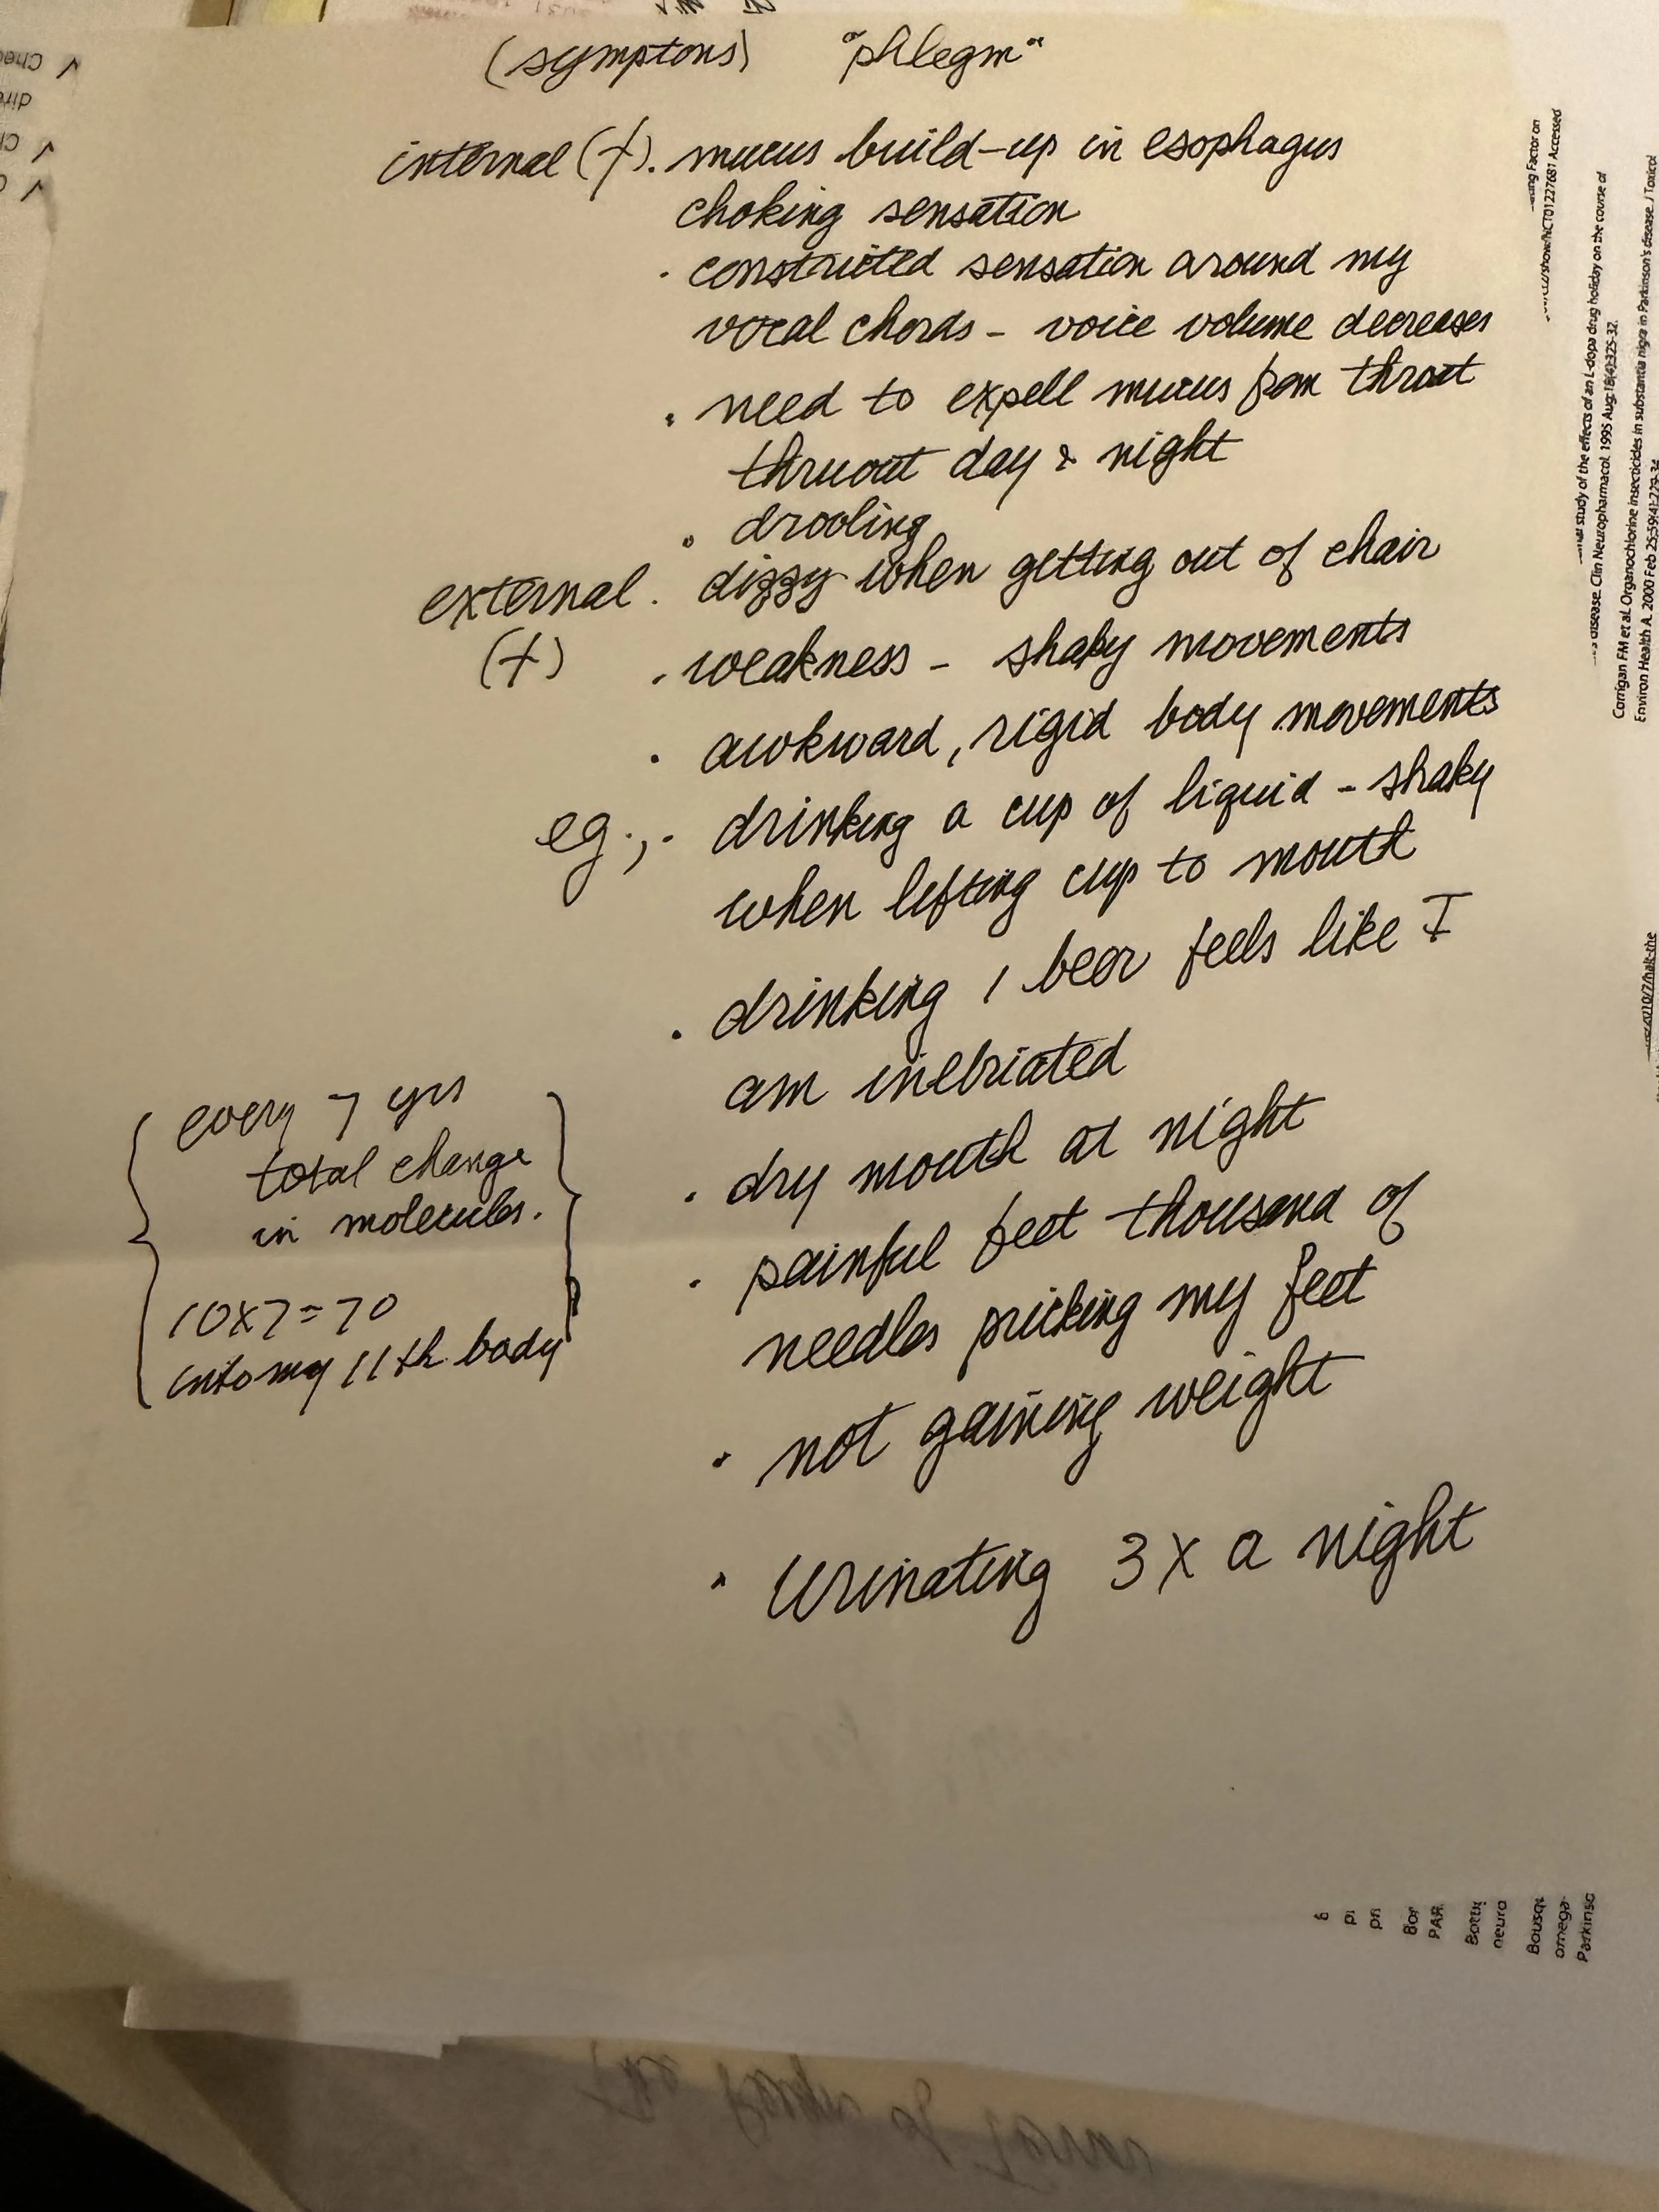 (symptons) "phlegm"
internal (+). mucus build-up in esophagus
choking sensation
. constricted sensation around my
vocal chords - voice volume decreases
. need to expell mucus from throat
thruout day & night
. drooling
external . dizzy when getting out of chair
(+) . weakness - shaky movements
. awkward, rigid body movements
eg., . drinking a cup of liquid - shaky
when lifting cup to mouth
. drinking 1 beer feels like I
am inebriated
. dry mouth at night
. painful feet thousand of
needles pricking my feet
. not gaining weight
. urinating 3 x a night
{ every 7 yrs
total change
in molecules. }
10x7=70
into my 11th body
ing Factor on
/show/NCT01227681 Accessed
study of the effects of an L-dopa drug holiday on the course of
disease. Clin Neuropharmacol. 1995 Aug; 18(4):325-32.
Corrigan FM et al. Organochlorine insecticides in substantia nigra in Parkinson's disease. J Toxicol
Environ Health A. 2000 Feb 25;59(4):229-34
2010/7/halt-the
pi
pri
Bor
PAR
neuro
Bousqu
omega-
Parkinso